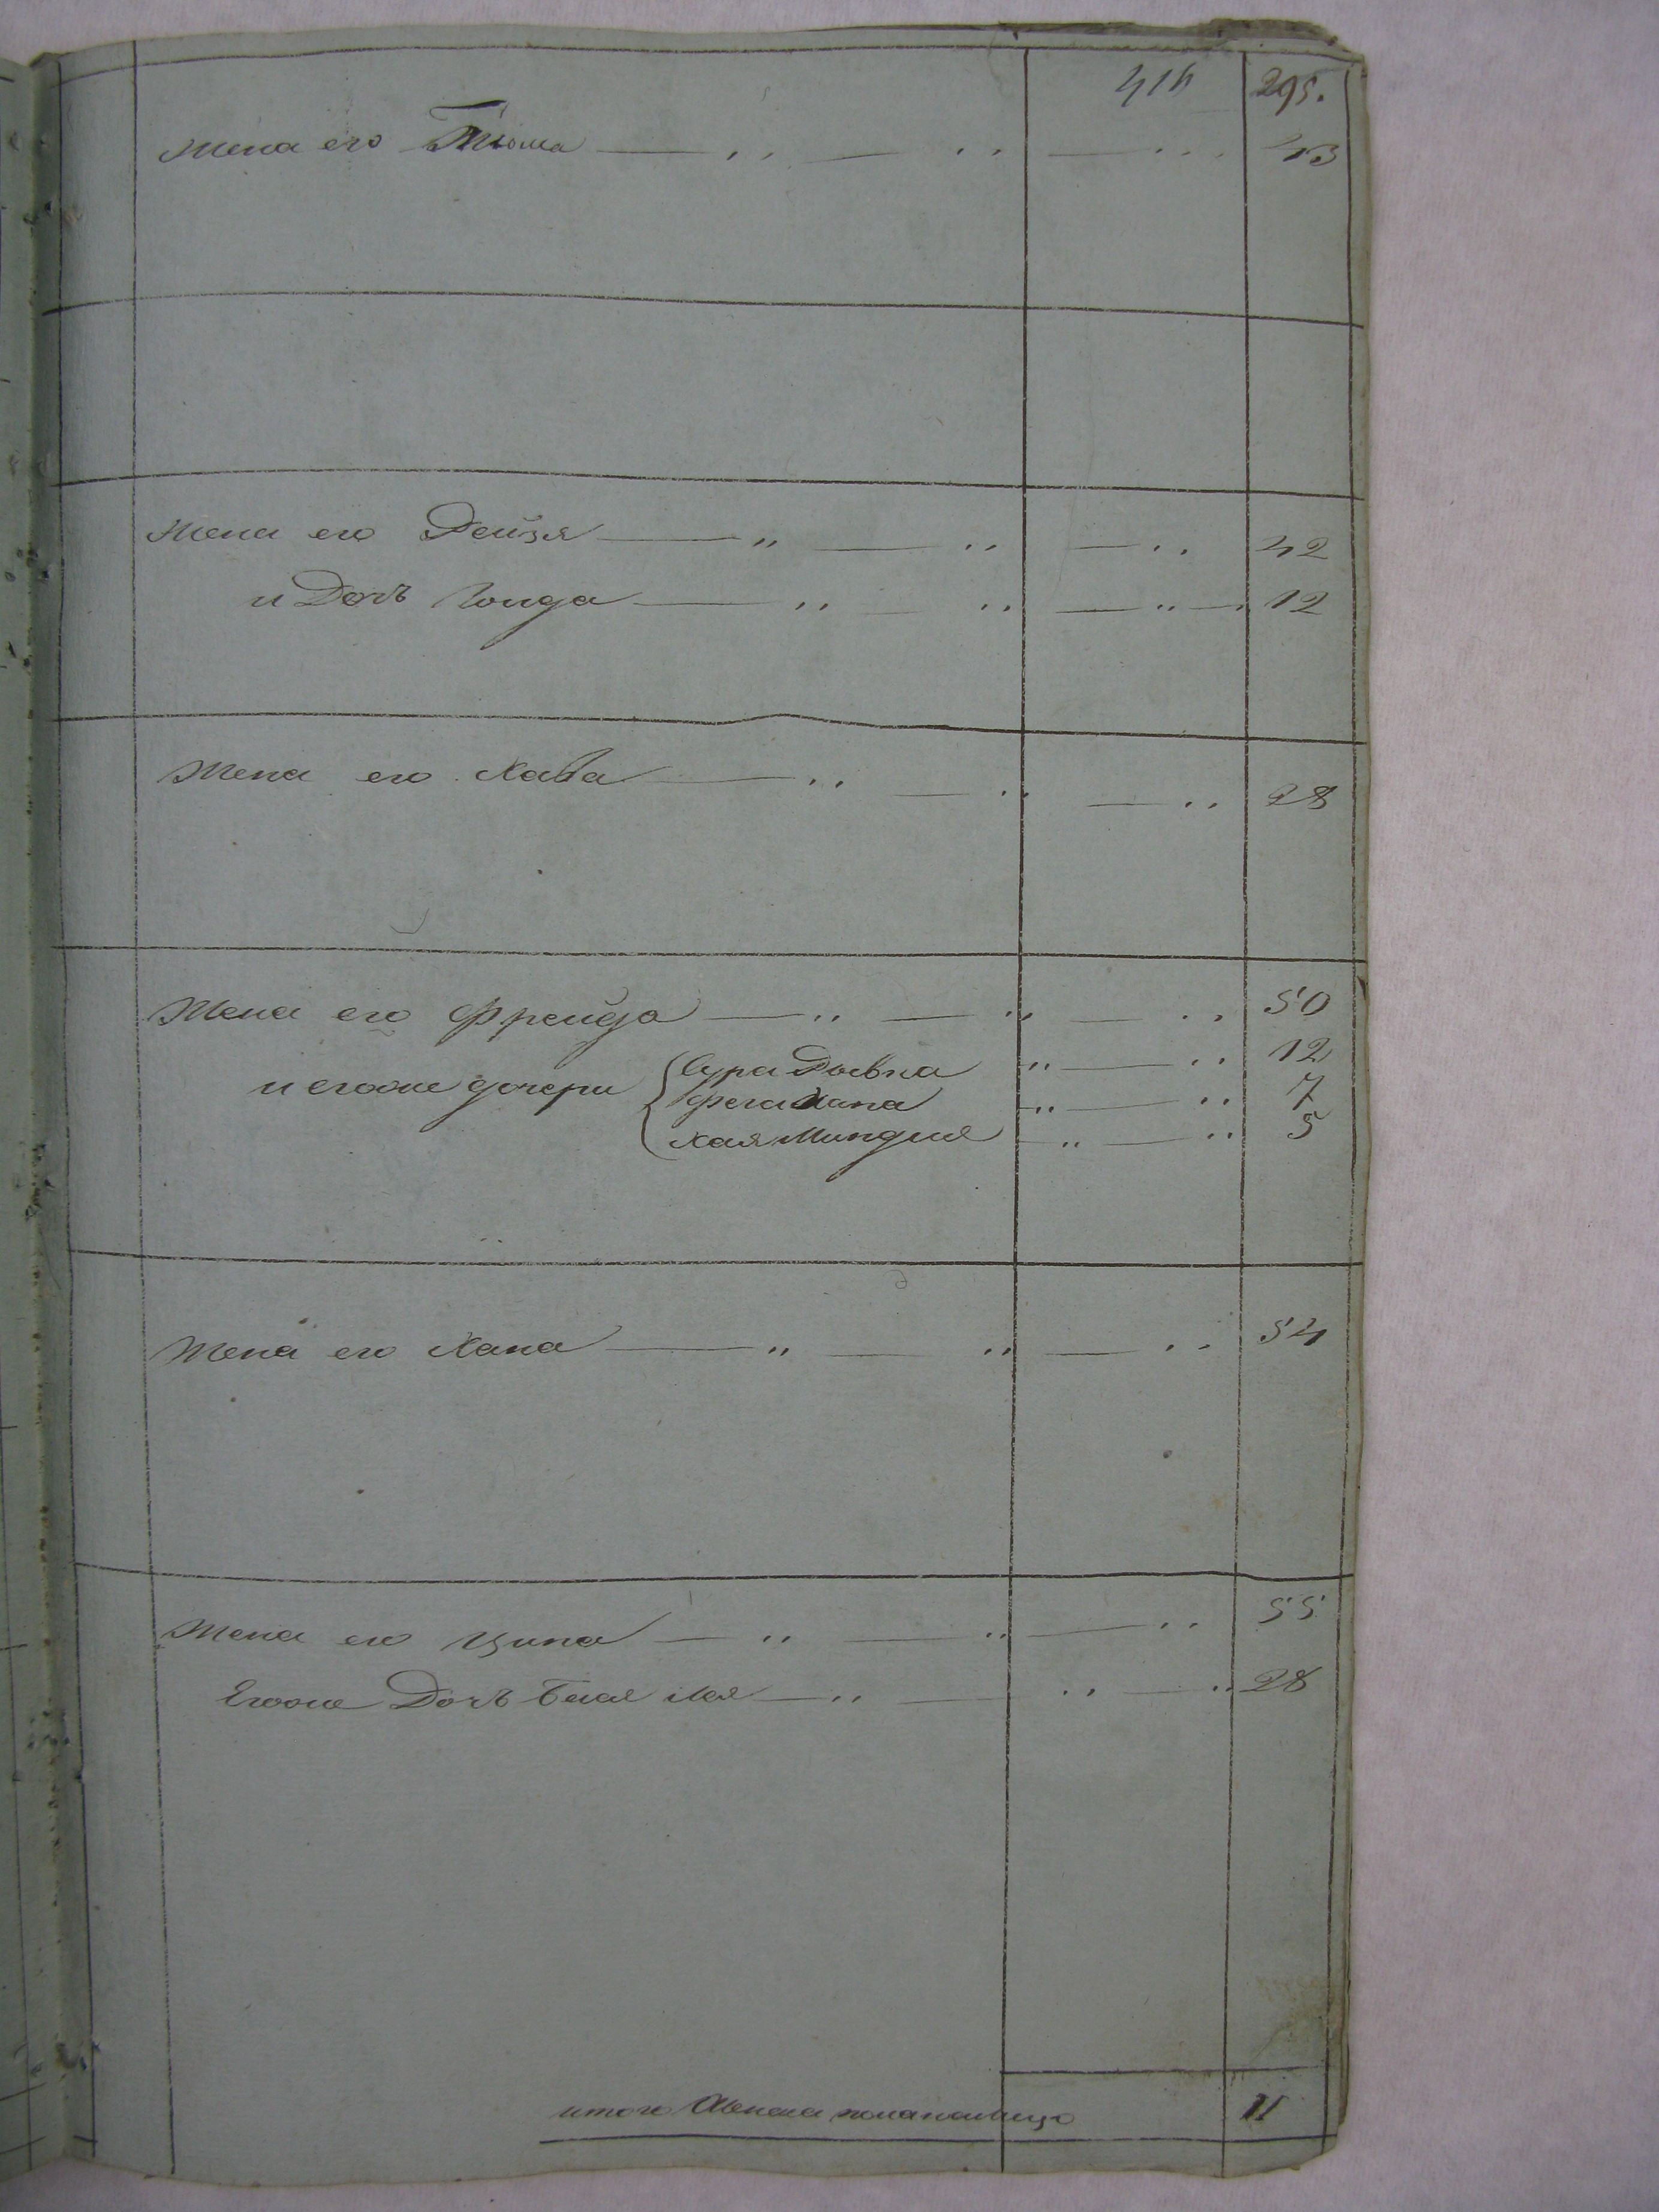 416 295.
Жена его 43
Жена его Рейзя — „ — „ — „ 42
и Дочь Гонда — „ — „ — „ — 12
Жена его Хава — „ — „ — „ 28
Жена его Фрейда — „ — „ — „ 50
и егоже дочери { Сура Рывка „ — „ 12
Фега Хана „ — „ 7
Хая Миндля „ — „ 5
Жена его Хана — „ — „ — „ 54
Жена его Ципа — „ — „ — „ 55
Егоже Дочь Бейля Лея — „ — „ — „ 28
итого женска пола налицо 11